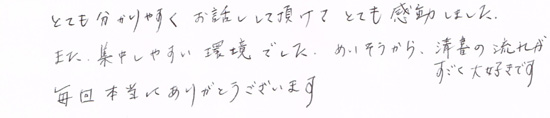 とても分かりやすく お話しして頂けて とても感動しました.
また.集中しやすい環境でした. めいそうから、清書の流れが
すごく大好きです
毎回本当にありがとうございます